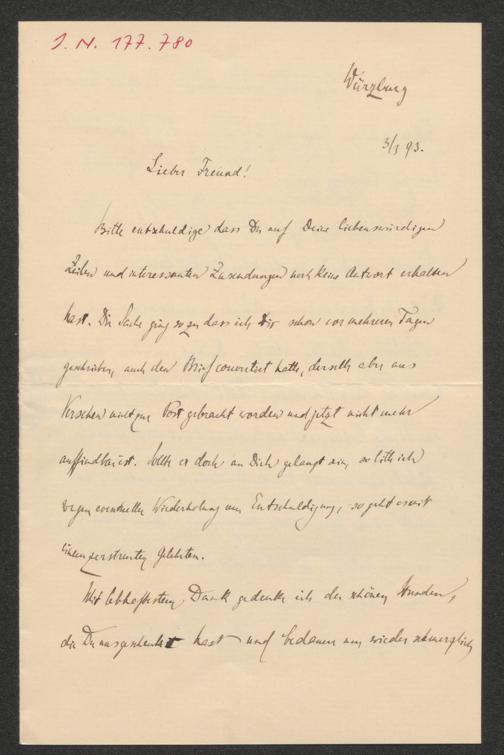 I. N. 177.780
Würzburg
3/3 93.
Lieber Freund!
Bitte entschuldige dass Du auf Deine liebenswürdigen
Zeilen und interessanten Zusendungen noch keine Antwort erhalten
hast. Die Sache ging so zu dass ich Dir schon vor mehreren Tagen
geschrieben, auch den Brief couvertirt hatte, derselbe aber aus
Versehen nicht zur Post gebracht worden und jetzt nicht mehr
auffindbar ist. Sollte er doch an Dich gelangt sein, so bitte ich
wegen eventueller Wiederholung um Entschuldigung, so geht es mit
einem zerstreuten Gelehrten.
Mit lebhaftestem Dank gedenke ich der schönen Stunden,
die Du uns geschenkt hast und bedauere nur wieder schmerzlich